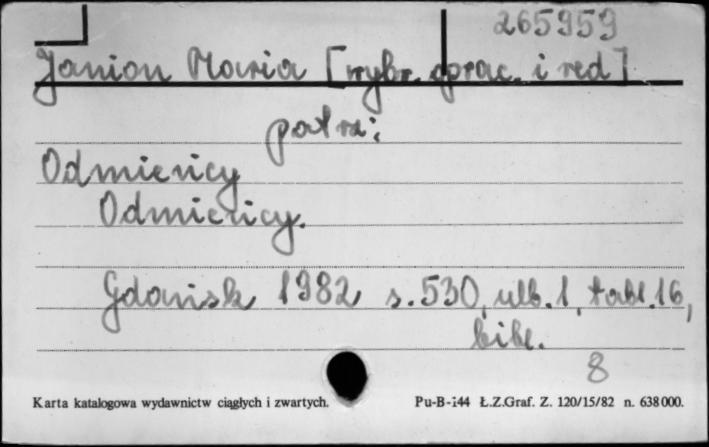 265959
Janion Maria [wybr. oprac. i red]
patrz:
Odmieńcy
Odmieńcy.
Gdańsk 1982 s. 530, nlb. 1, tabl. 16,
bibl.
8
Karta katalogowa wydawnictw ciągłych i zwartych.
Pu-B-i44 Ł.Z.Graf. Z. 120/15/82 n. 638000.